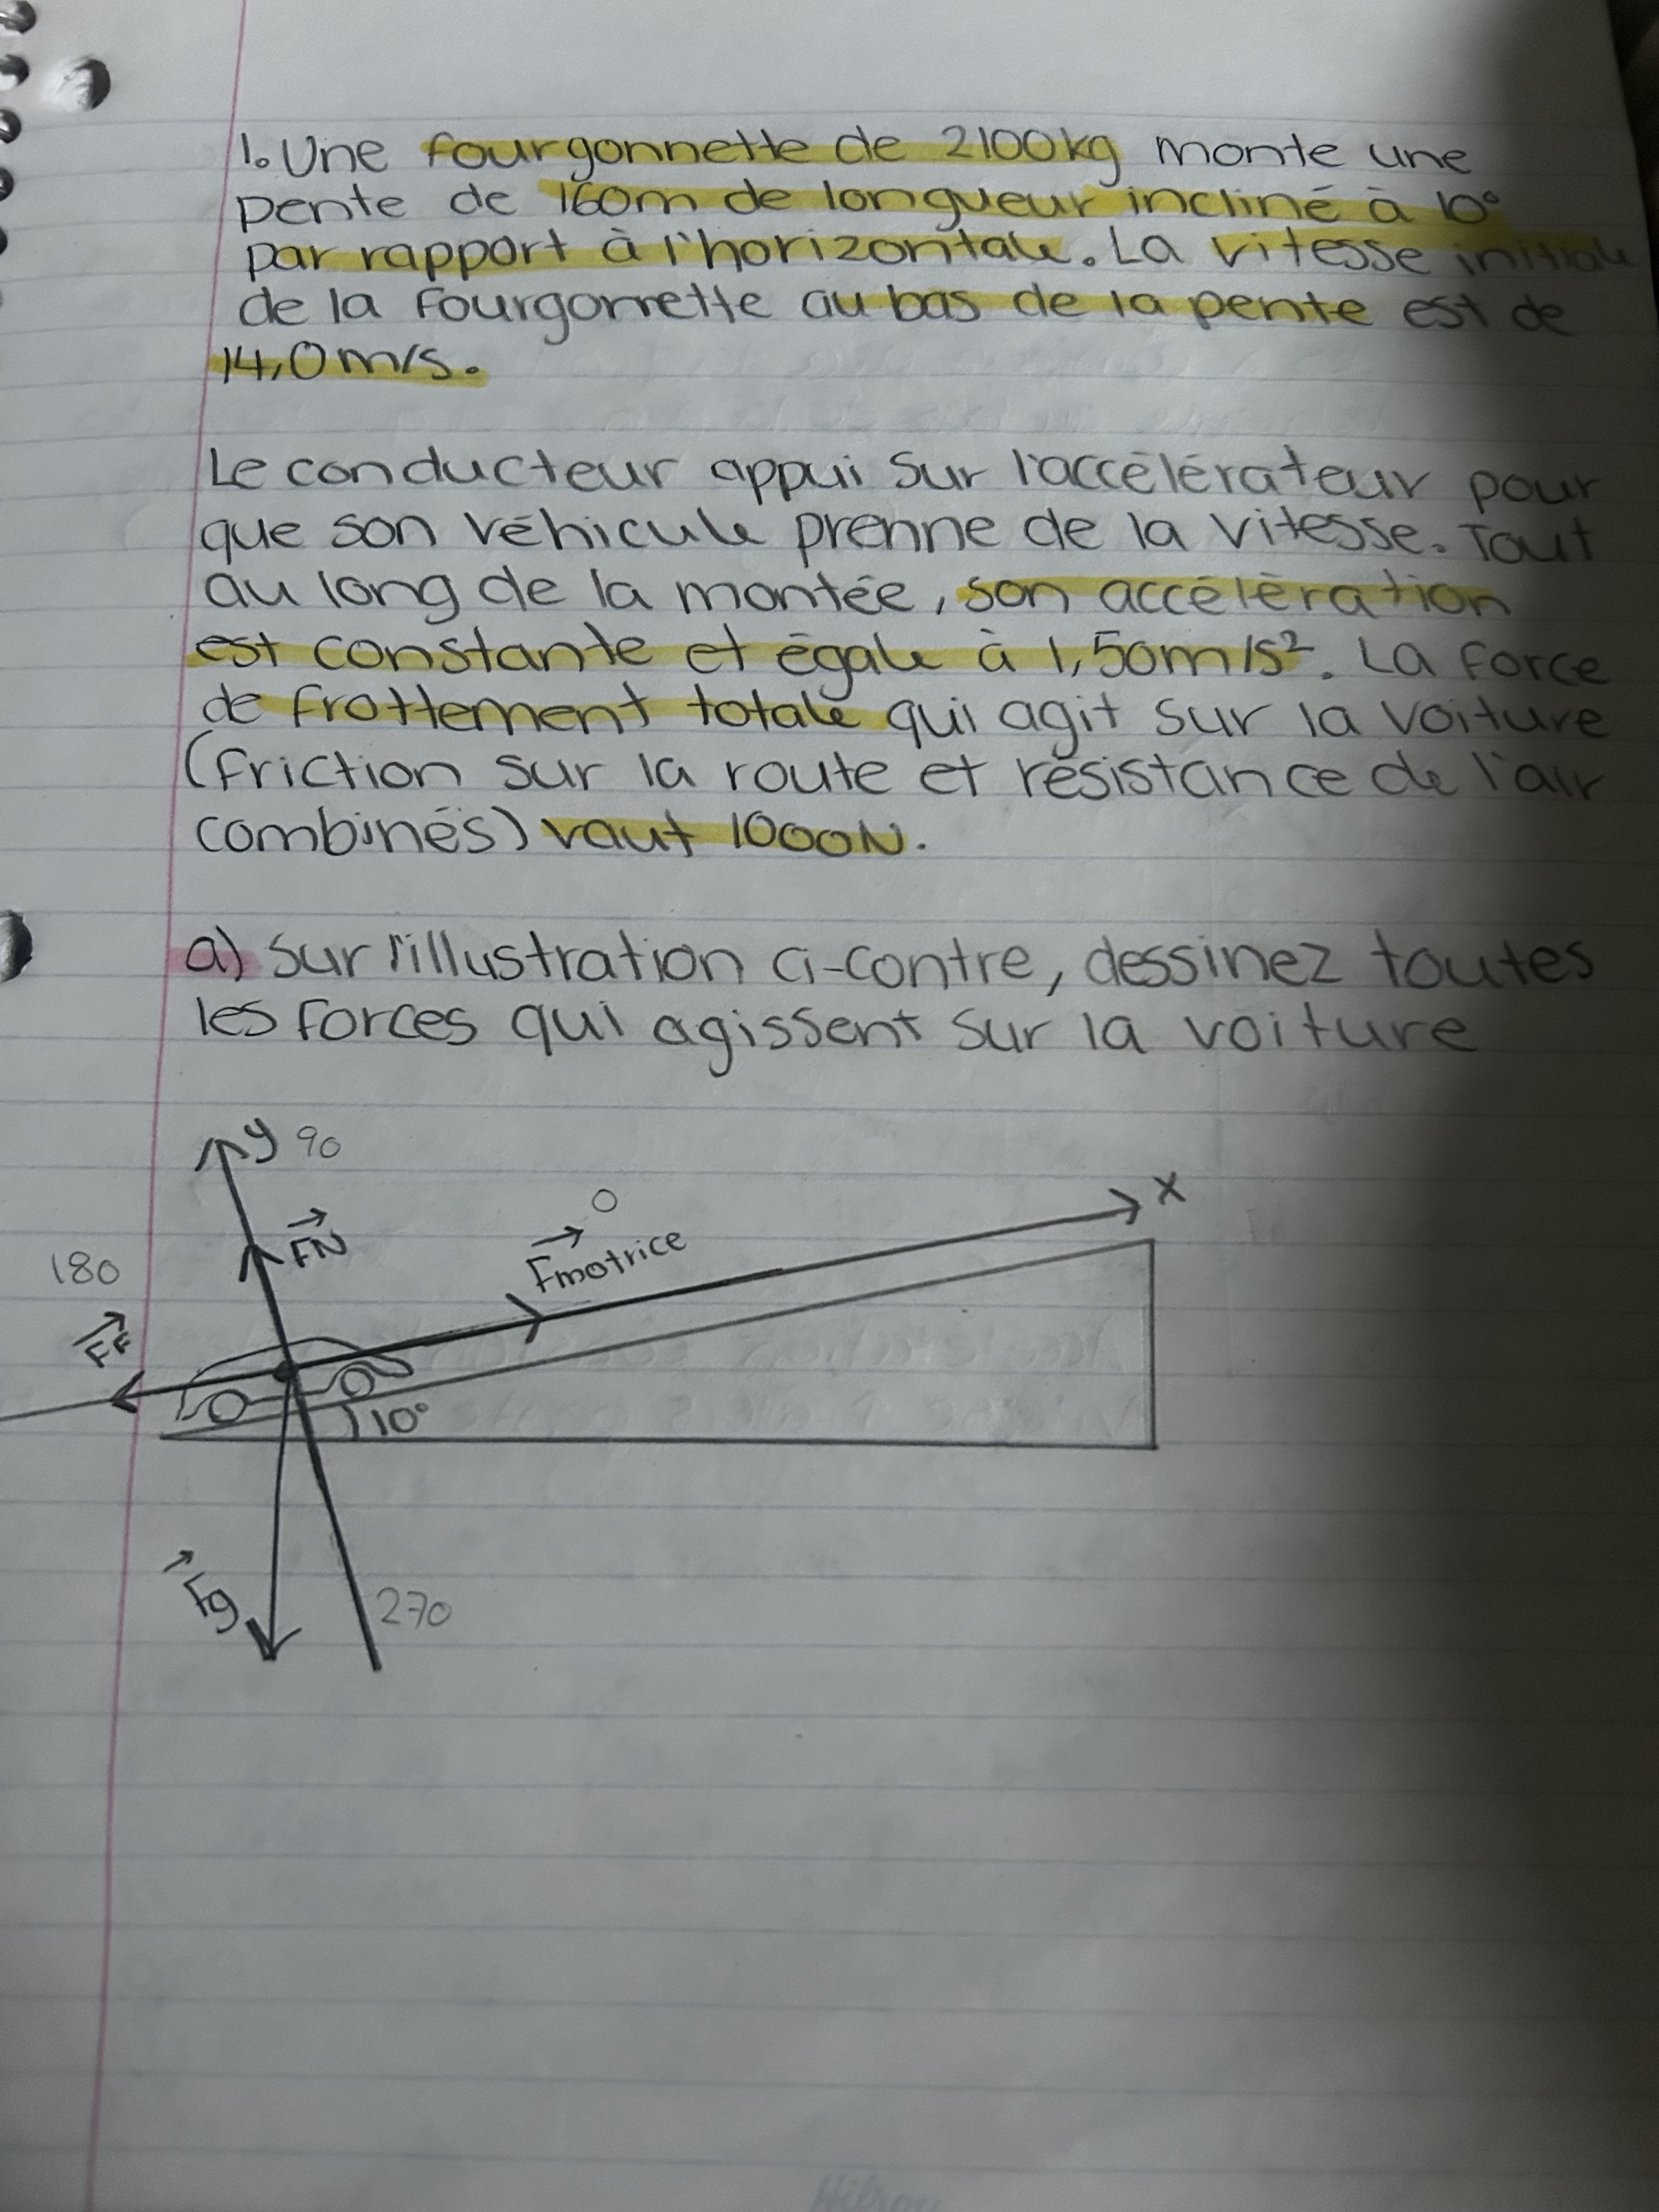 1. Une fourgonnette de 2100kg monte une
pente de 160m de longueur incliné à 10°
par rapport à l'horizontale. La vitesse initiale
de la fourgonnette au bas de la pente est de
14,0m/s.
Le conducteur appui sur l'accélérateur pour
que son véhicule prenne de la vitesse. Tout
au long de la montée, son accélération
est constante et égale à 1,50m/s². La force
de frottement totale qui agit sur la voiture
(friction sur la route et résistance de l'air
combinés) vaut 1000N.
a) Sur l'illustration ci-contre, dessinez toutes
les forces qui agissent sur la voiture
y 90
x
0
FN
Fmotrice
180
FF
10°
Fg
270